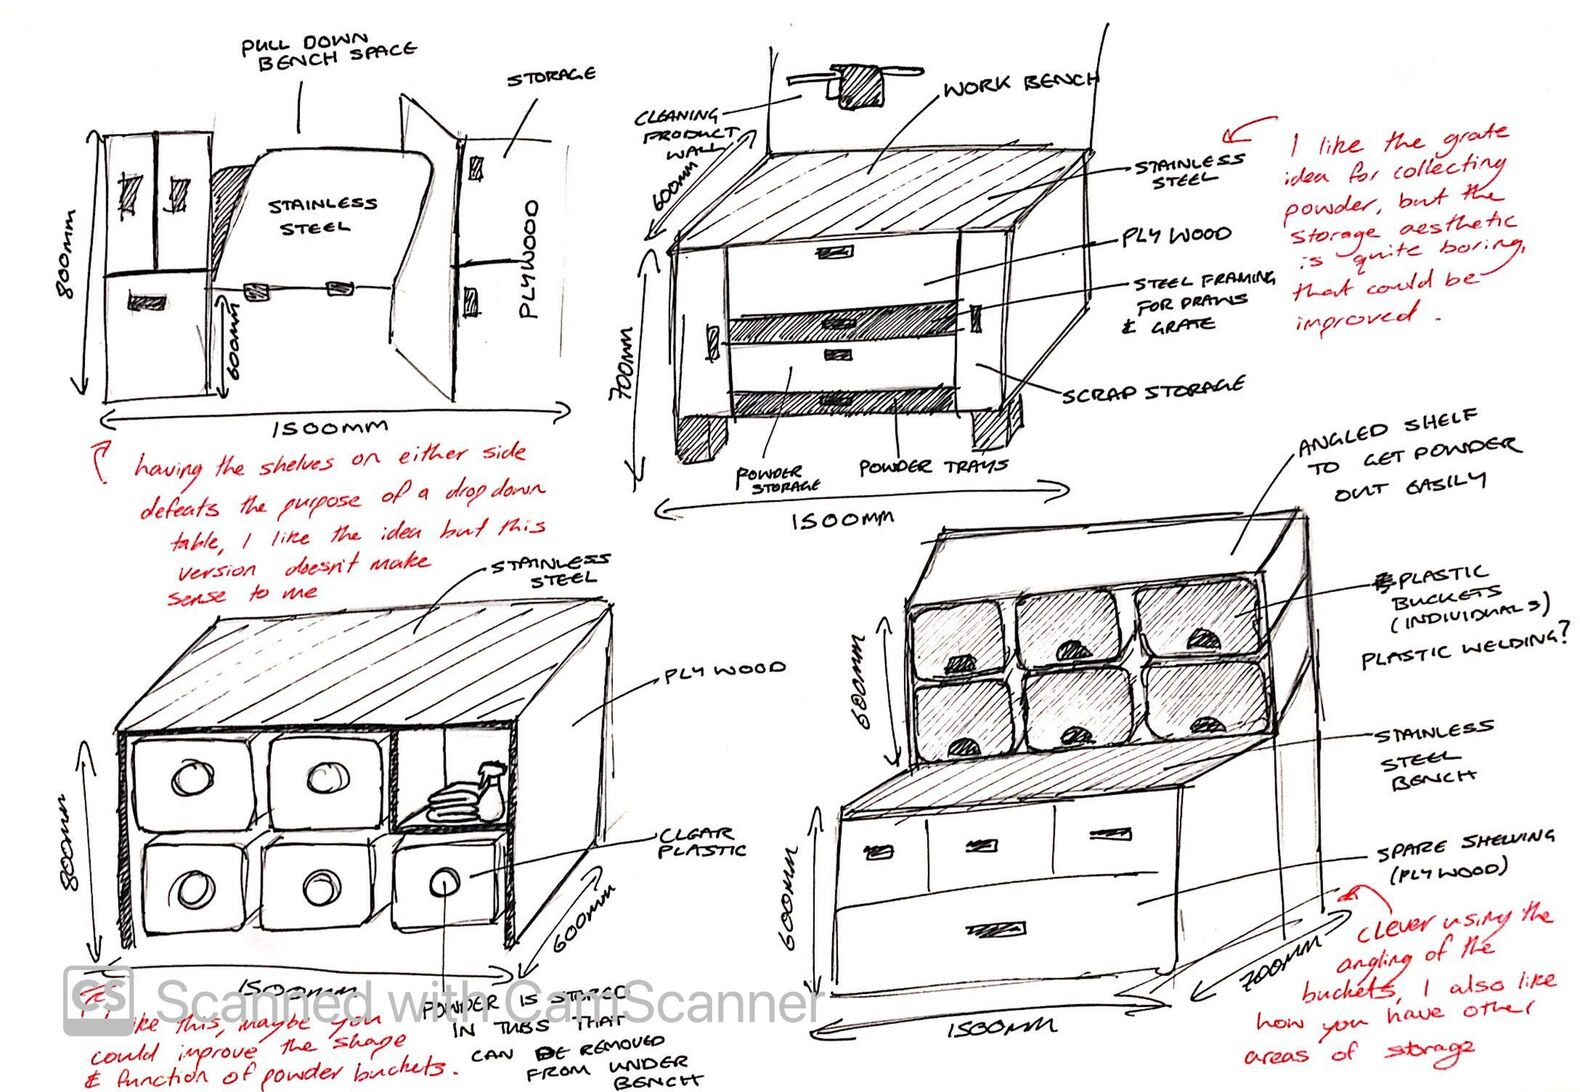 PULL DOWN
BENCH SPACE
STORAGE
STAINLESS
STEEL
PLYWOOD
800MM
600MM
1500MM
having the shelves on either side
defeats the purpose of a drop down
table, I like the idea but this
version doesn't make
sense to me
CLEANING
PRODUCT
WALL
WORK BENCH
600MM
STAINLESS
STEEL
PLY WOOD
STEEL FRAMING
FOR DRAWS
& GRATE
SCRAP STORAGE
700MM
POWDER
STORAGE
POWDER TRAYS
1500MM
I like the grate
idea for collecting
powder, but the
storage aesthetic
is quite boring,
that could be
improved.
STAINLESS
STEEL
PLY WOOD
CLEAR
PLASTIC
800MM
600MM
1500MM
POWDER IS STORED
IN TUBS THAT
CAN BE REMOVED
FROM UNDER
BENCH
I like this, maybe you
could improve the shape
& function of powder buckets.
ANGLED SHELF
TO GET POWDER
OUT EASILY
PLASTIC
BUCKETS
(INDIVIDUALS)
PLASTIC WELDING?
600MM
STAINLESS
STEEL
BENCH
SPARE SHELVING
(PLYWOOD)
600MM
700MM
1500MM
clever using the
angling of the
buckets, I also like
how you have other
areas of storage
CS Scanned with CamScanner